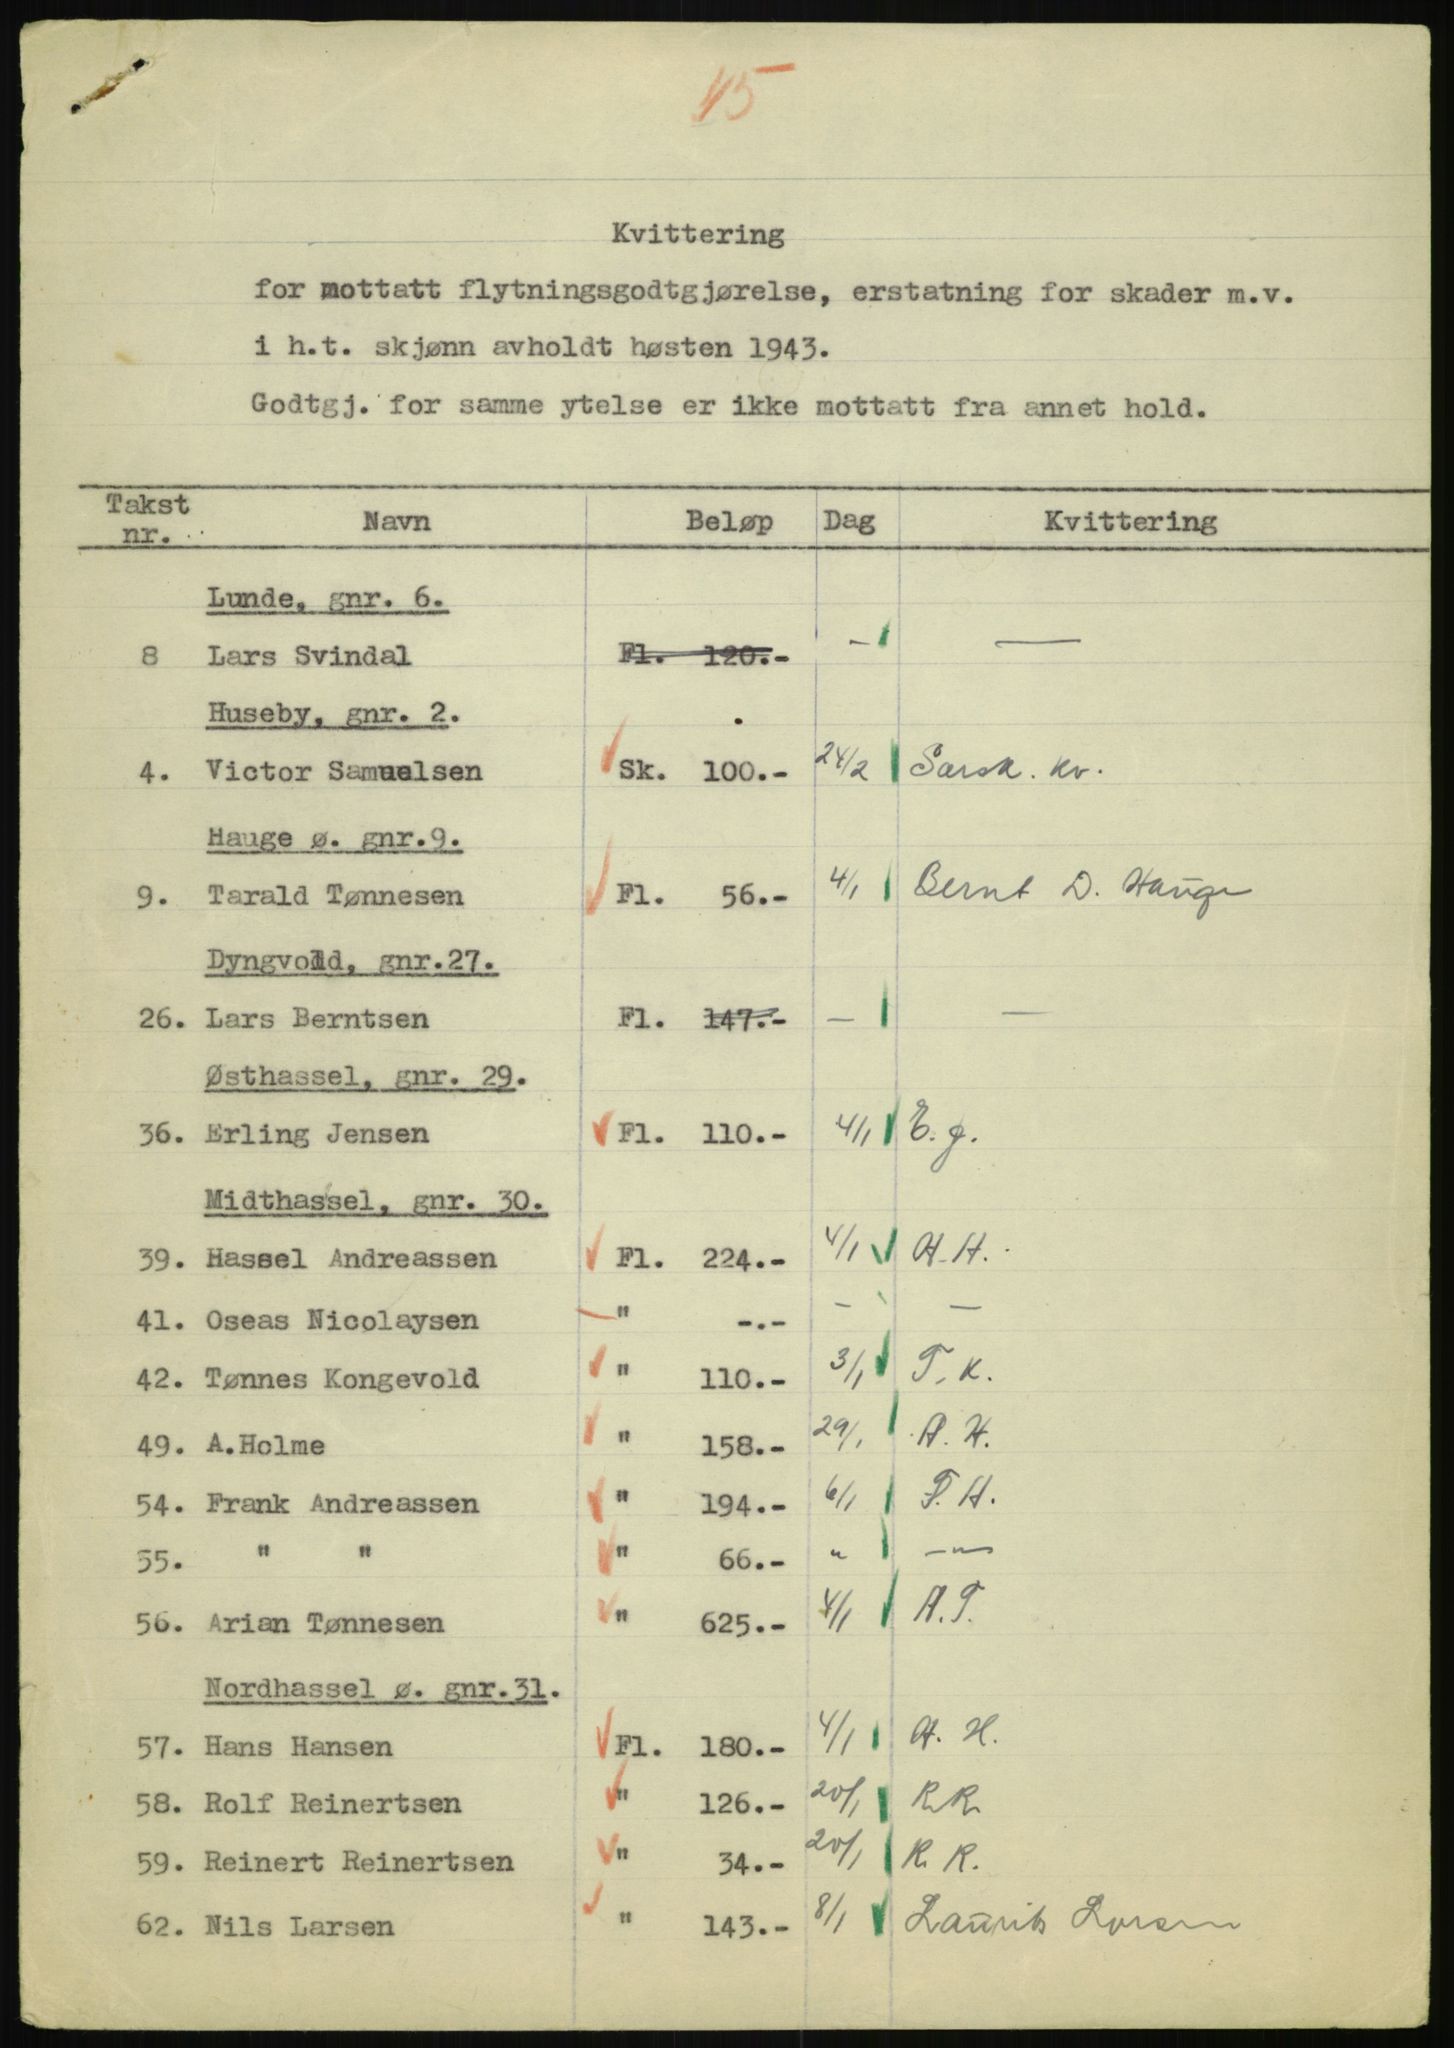 45
Kvittering
for mottatt flytningsgodtgjørelse, erstatning for skader m.v.
i h.t. skjønn avholdt høsten 1943.
Godtgj. for samme ytelse er ikke mottatt fra annet hold.
Takst nr. Navn Beløp Dag Kvittering
Lunde, gnr. 6.
8 Lars Svindal Fl. 120.- — —
Huseby, gnr. 2.
4. Victor Samuelsen Sk. 100.- 24/2 Særsk. kv.
Hauge ø. gnr.9.
9. Tarald Tønnesen Fl. 56.- 4/1 Bernt D. Hauge
Dyngvold, gnr.27.
26. Lars Berntsen Fl. 147.- — —
Østhassel, gnr. 29.
36. Erling Jensen Fl. 110.- 4/1 E. J.
Midthassel, gnr. 30.
39. Hassel Andreassen Fl. 224.- 4/1 H. H.
41. Oseas Nicolaysen " -.- — —
42. Tønnes Kongevold " 110.- 3/1 T. K.
49. A.Holme " 158.- 29/1 A. H.
54. Frank Andreassen " 194.- 6/1 F. H.
55. " " " 66.- " —"—
56. Arian Tønnesen " 625.- 4/1 A.T.
Nordhassel ø. gnr.31.
57. Hans Hansen Fl. 180.- 4/1 H. H.
58. Rolf Reinertsen " 126.- 20/1 R.R.
59. Reinert Reinertsen " 34.- 20/1 R. R.
62. Nils Larsen " 143.- 8/1 Laurits Larsen